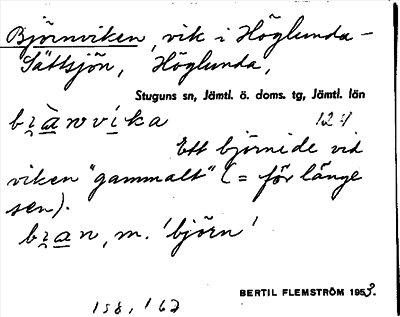 Björnviken, vik i Höglunda-
Sättsjön, Höglunda,
Stuguns sn, Jämtl. ö. doms. tg, Jämtl. län
12:1
Ett björnide vid
viken "gammalt" (= för länge
sen).
m. 'björn'
BERTIL FLEMSTRÖM 1953.
158, 162